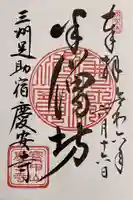 奉拝 令和六年
月十六日
半僧坊
三州足助宿 慶安寺